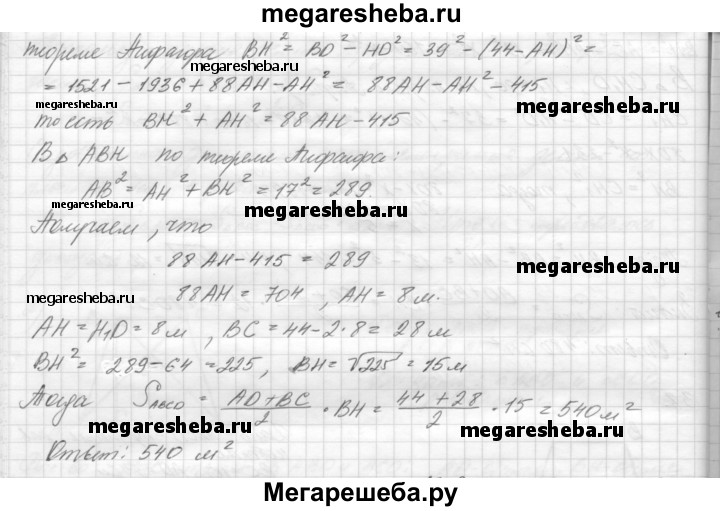 megaresheba.ru
теореме Пифагора BH² = BD² - HD² = 39² - (44-AH)² =
megaresheba.ru
= 1521 - 1936 + 88AH - AH² = 88AH - AH² - 415
megaresheba.ru
megaresheba.ru
то есть BH² + AH² = 88AH - 415
В Δ ABH по теореме Пифагора:
megaresheba.ru
AB² = AH² + BH² = 17² = 289
megaresheba.ru
Получаем, что
88AH - 415 = 289
megaresheba.ru
88AH = 704, AH = 8 м.
megaresheba.ru
AH = H₁D = 8 м, BC = 44 - 2·8 = 28 м
BH² = 289 - 64 = 225, BH = √225 = 15 м
Тогда S = (AD + BC)/2 · BH = (44 + 28)/2 · 15 = 540 м²
megaresheba.ru
megaresheba.ru
Ответ: 540 м²
Мегарешеба.ру